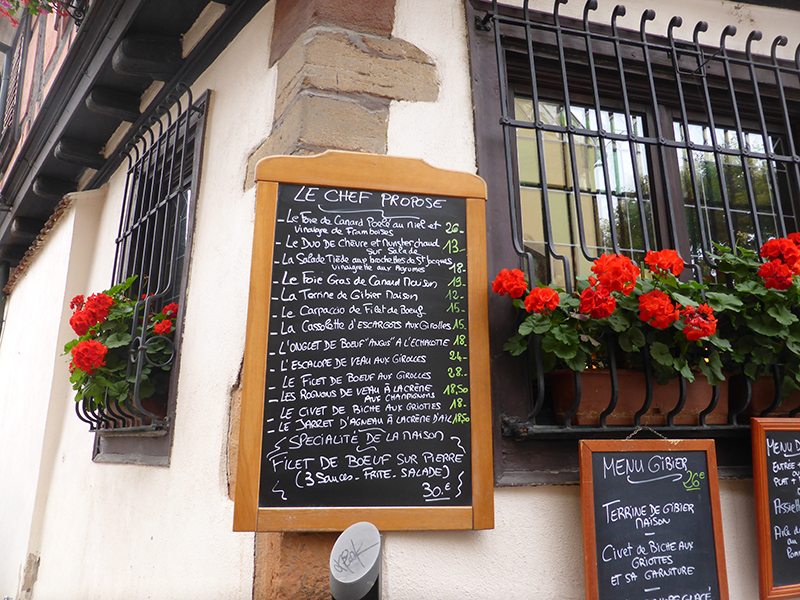 LE CHEF PROPOSE
- Le Foie de Canard Poêlé au Miel et
vinaigre de Framboises 26.-
- Le Duo de Chèvre et Munster chaud
sur Salade 13.-
- La Salade Tiède aux brochettes de St Jacques
Vinaigrette aux Agrumes 18.-
- Le Foie Gras de Canard Maison 19.-
- La Terrine de Gibier Maison 12.-
- Le Carpaccio de Filet de Boeuf 15.-
- La Cassolette d'ESCARGOTS AUX GIROLLES 15.-
- L'ONGLET DE BOEUF "ANGUS" A L'ÉCHALOTTE 18.-
- L'ESCALOPE DE VEAU AUX GIROLLES 24.-
- LE FILET DE BOEUF AUX GIROLLES 28.-
- LES ROGNONS DE VEAU À LA CRÈME
AUX CHAMPIGNONS 18,50
- LE CIVET DE BICHE AUX GRIOTTES 18.-
- LE JARRET D'AGNEAU À LA CRÈME D'AIL 18,50
SPÉCIALITÉ DE LA MAISON
FILET DE BOEUF SUR PIERRE
(3 SAUCES - FRITE - SALADE)
30.€
MENU GIBIER
26€
TERRINE DE GIBIER
MAISON
CIVET DE BICHE AUX
GRIOTTES
ET SA GARNITURE
GLACÉ
MENU